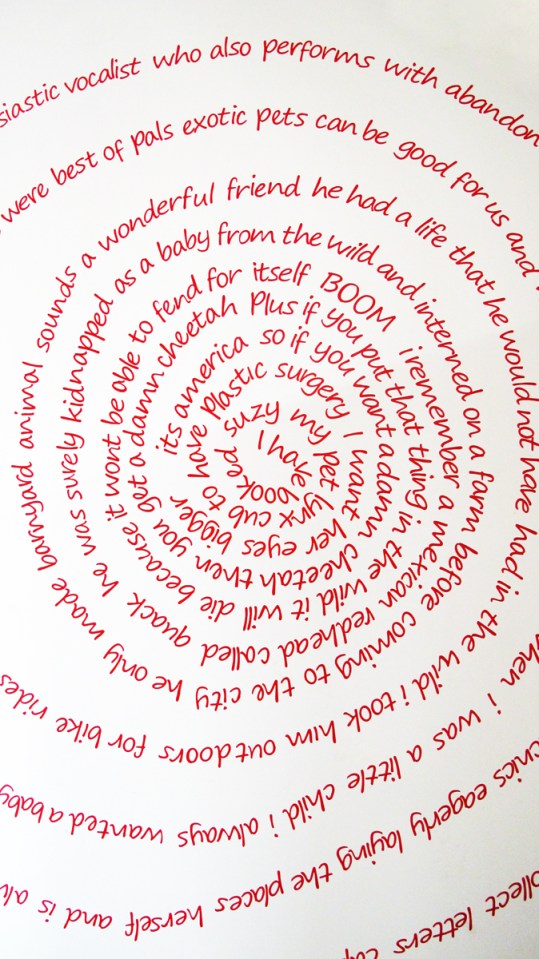 I have booked
suzy my pet lynx cub to have
plastic surgery I want her eyes bigger
its america so if you want a damn cheetah then you
get a damn cheetah Plus if you put that thing in the wild it will die because
it wont be able to fend for itself BOOM
i remember a mexican redhead called quack he was surely
kidnapped as a baby from the wild and interned on a farm before coming to the city he only made
barnyard animal sounds a wonderful friend he had a life that he would not have had in the wild i took him outdoors for bike rides
were best of pals exotic pets can be good for us and
when i was a little child i always wanted a baby
siastic vocalist who also performs with abandon
cnics eagerly laying the places herself and is
ollect letters